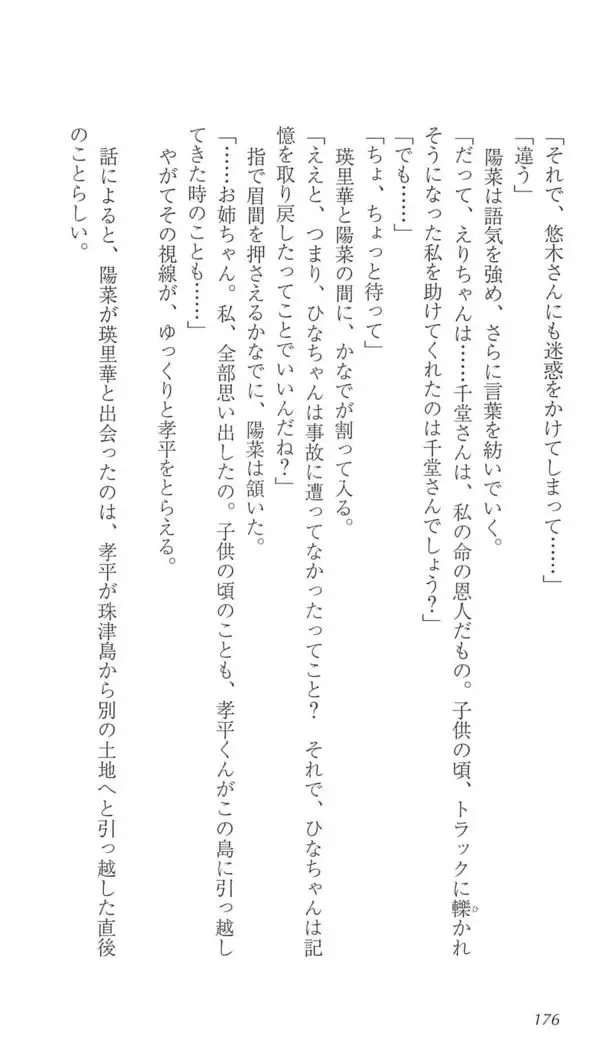 「それで、悠木さんにも迷惑をかけてしまって……」
「違う」
　陽菜は語気を強め、さらに言葉を紡いでいく。
「だって、えりちゃんは……千堂さんは、私の命の恩人だもの。子供の頃、トラックに轢かれ
そうになった私を助けてくれたのは千堂さんでしょう？」
「でも……」
「ちょ、ちょっと待って」
　瑛里華と陽菜の間に、かなでが割って入る。
「ええと、つまり、ひなちゃんは事故に遭ってなかったってこと？　それで、ひなちゃんは記
憶を取り戻したってことでいいんだね？」
　指で眉間を押さえるかなでに、陽菜は頷いた。
「……お姉ちゃん。私、全部思い出したの。子供の頃のことも、孝平くんがこの島に引っ越し
てきた時のことも……」
　やがてその視線が、ゆっくりと孝平をとらえる。
　話によると、陽菜が瑛里華と出会ったのは、孝平が珠津島から別の土地へと引っ越した直後
のことらしい。
ひ
176